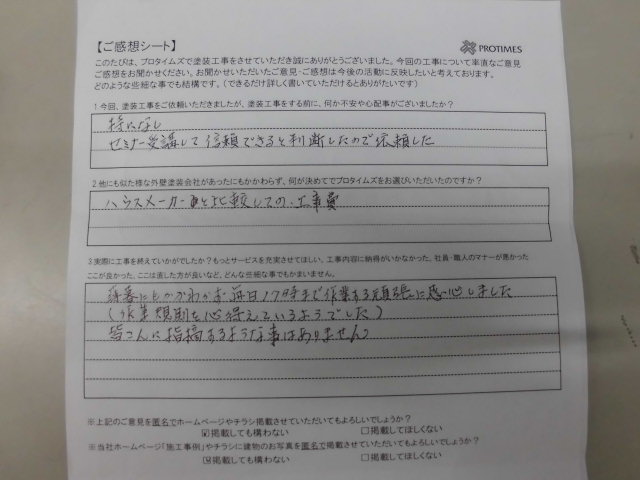 【ご感想シート】
PROTIMES
このたびは、プロタイムズで塗装工事をさせていただき誠にありがとうございました。今回の工事について率直なご意見
ご感想をお聞かせください。お聞かせいただいたご意見・ご感想は今後の活動に反映したいと考えております。
どのような些細な事でも結構です。(できるだけ詳しく書いていただけるとありがたいです)
1.今回、塗装工事をご依頼いただきましたが、塗装工事をする前に、何か不安や心配事がございましたか?
特になし
セミナー受講して信頼できると判断したので依頼した
2.他にも似た様な外壁塗装会社があったにもかかわらず、何が決めてでプロタイムズをお選びいただいたのですか?
ハウスメーカーと比較しての、工事費
3.実際に工事を終えていかがでしたか?もっとサービスを充実させてほしい、工事内容に納得がいかなかった、社員・職人のマナーが悪かった
ここが良かった、ここは直した方が良いなど、どんな些細な事でもかまいません。
猛暑にもかかわわらず、毎日17時まで作業する頑張に感心しました
(作業規則を心得えているようでした)
皆さんに指摘するような事はありません
※上記のご意見を匿名でホームページやチラシ掲載させていただいてもよろしいでしょうか?
☑掲載しても構わない □掲載してほしくない
※当社ホームページ「施工事例」やチラシに建物のお写真を匿名で掲載させていただいてもよろしいでしょうか?
☑掲載しても構わない □掲載してほしくない